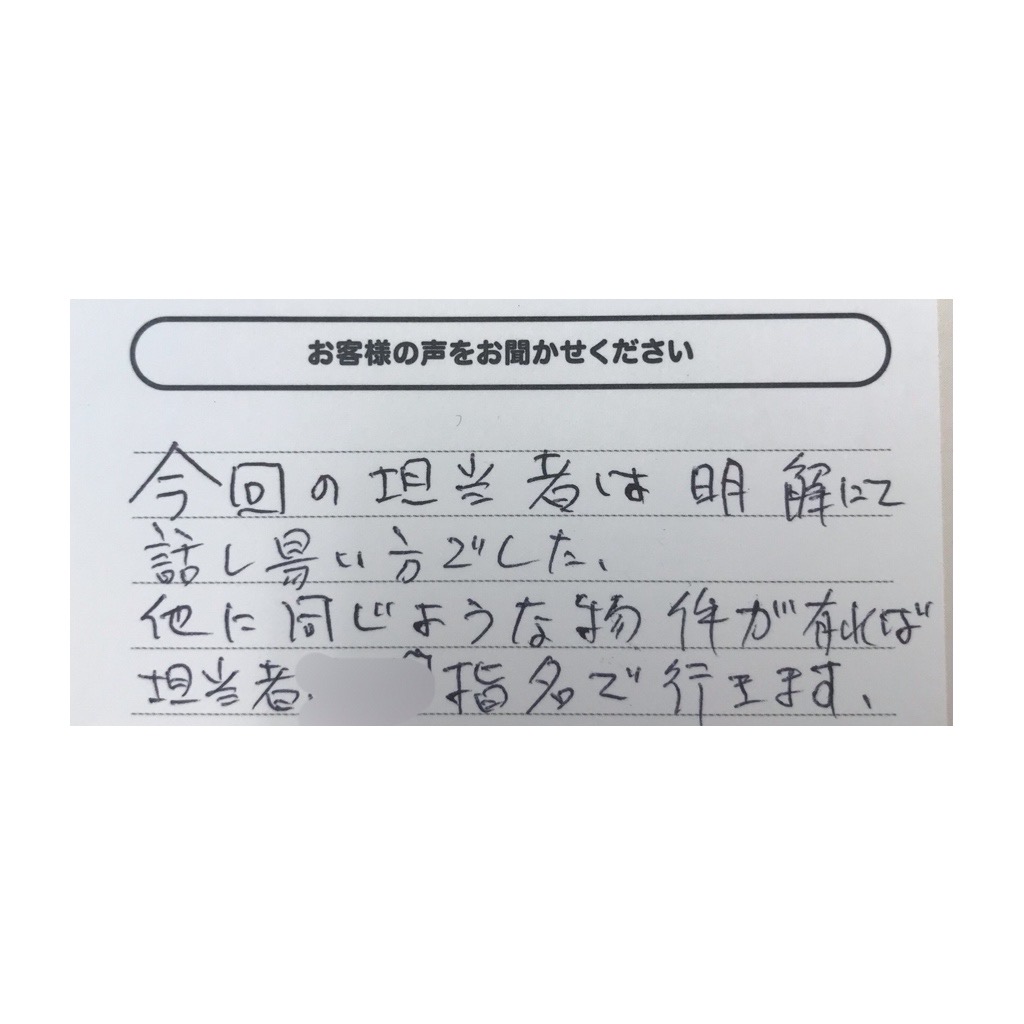 お客様の声をお聞かせください
今回の担当者は明解にて
話し易い方でした、
他に同じような物件が有れば
担当者 指名で行きます、